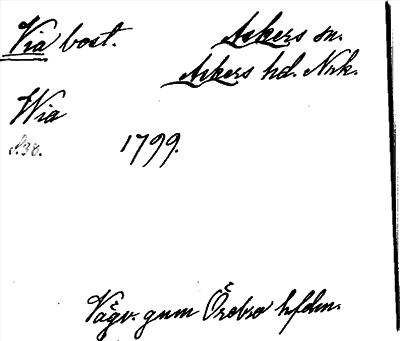 Via bost. Askers sn.
Askers hd. Nrk.
Wia
S.38. 1799.
Vägv. gnm Örebro hfdm.